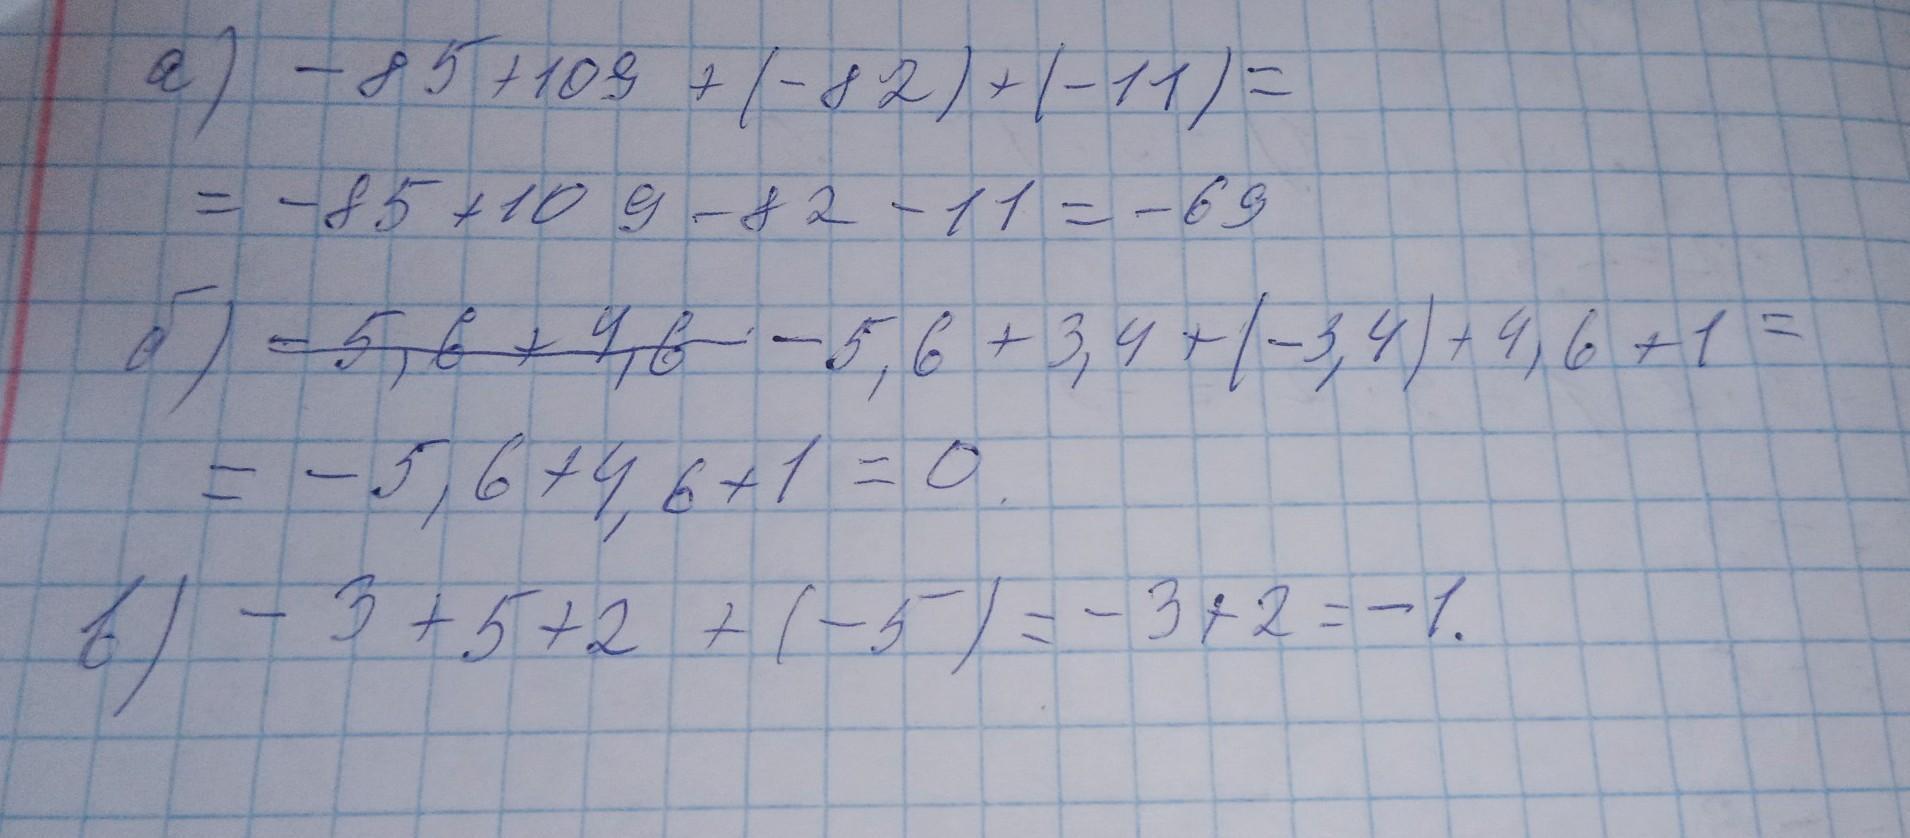 а) -85+109 +(-82)+(-11)=
= -85+109-82-11=-69
б) -5,6+4,6 -5,6+3,4+(-3,4)+4,6+1=
= -5,6+4,6+1=0.
в) -3+5+2 +(-5)=-3+2=-1.